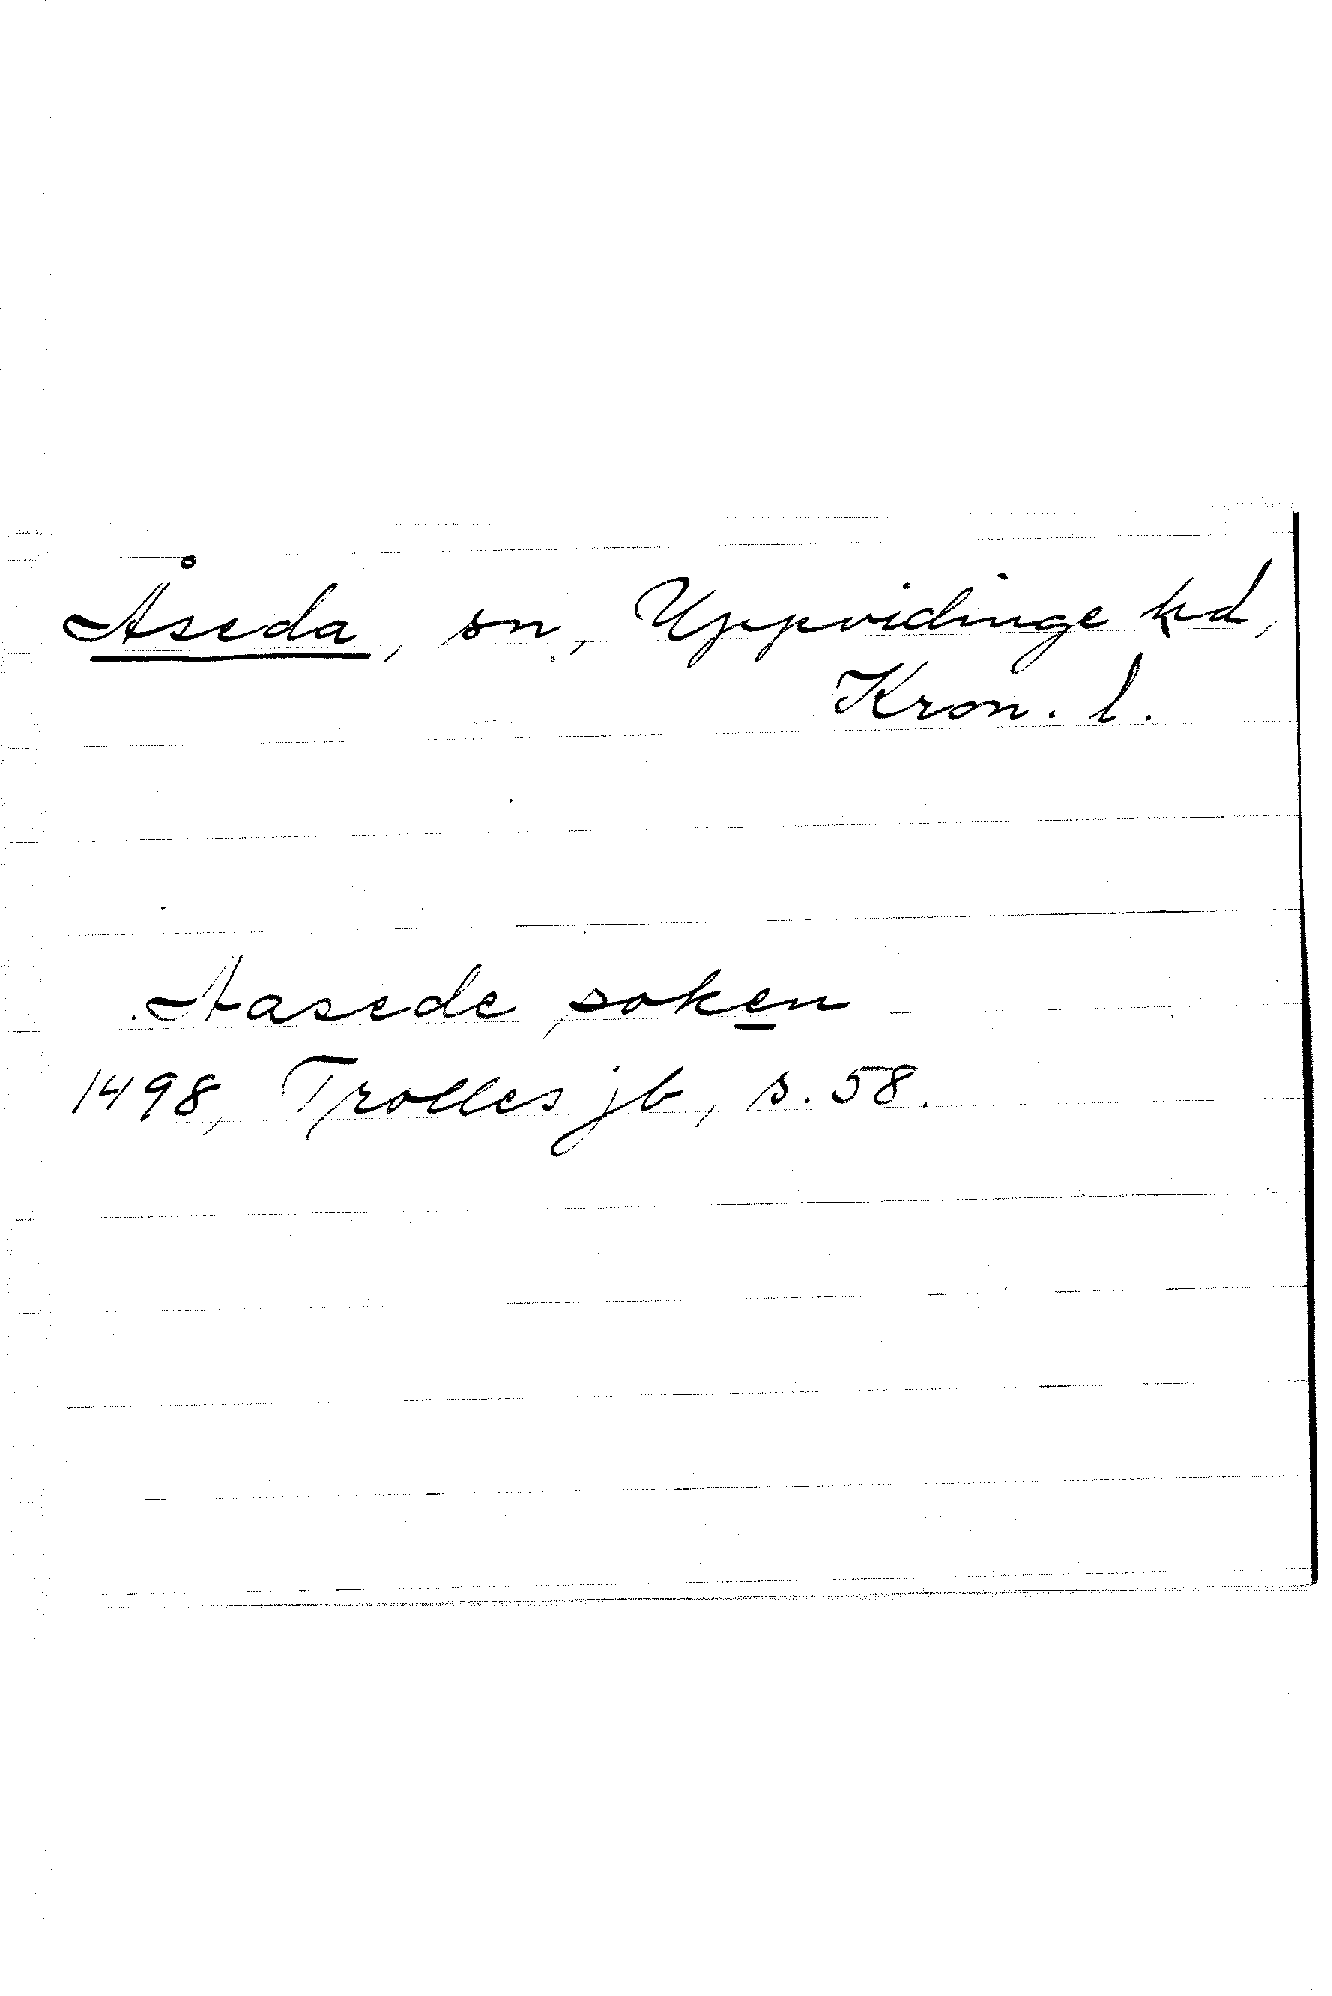 Åseda, sn, Uppvidinge hd,
Kron. l.
Aasede soken
1498, Trolles jb, s. 58.